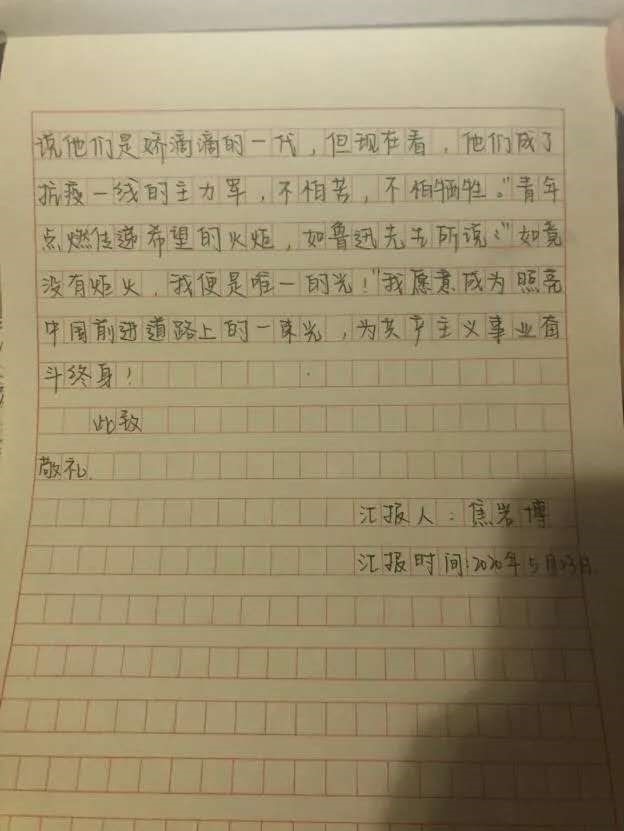 说他们是娇滴滴的一代，但现在看，他们成了
抗疫一线的主力军，不怕苦，不怕牺牲。"青年
点燃传递希望的火炬，如鲁迅先生所说："如竟
没有炬火，我便是唯一的光！"我愿意成为照亮
中国前进道路上的一束光，为共产主义事业奋
斗终身！
此致
敬礼
汇报人：焦岩博
汇报时间：2020年5月23日